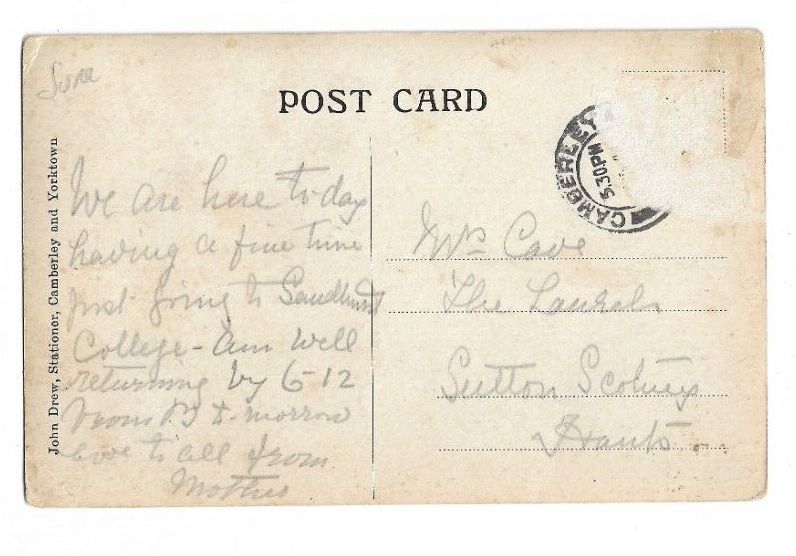 POST CARD
John Drew, Stationer, Camberley and Yorktown
CAMBERLEY
5.30PM
We are here to-day
having a fine time
just going to Sandhurst
College - am well
returning by 6-12
to-morrow
love to all from
Mother
Mrs Cave
The Laurels
Sutton Scotney
Hants